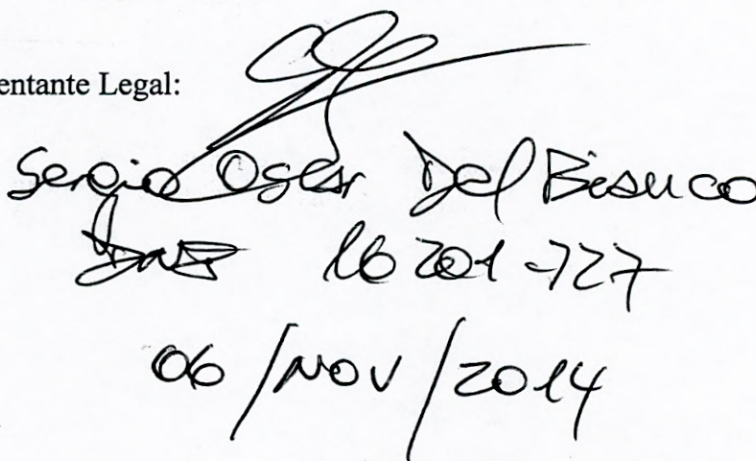 entante Legal:
Sergio Oscar Del Bianco
DNI 16201-727
06/NOV/2014